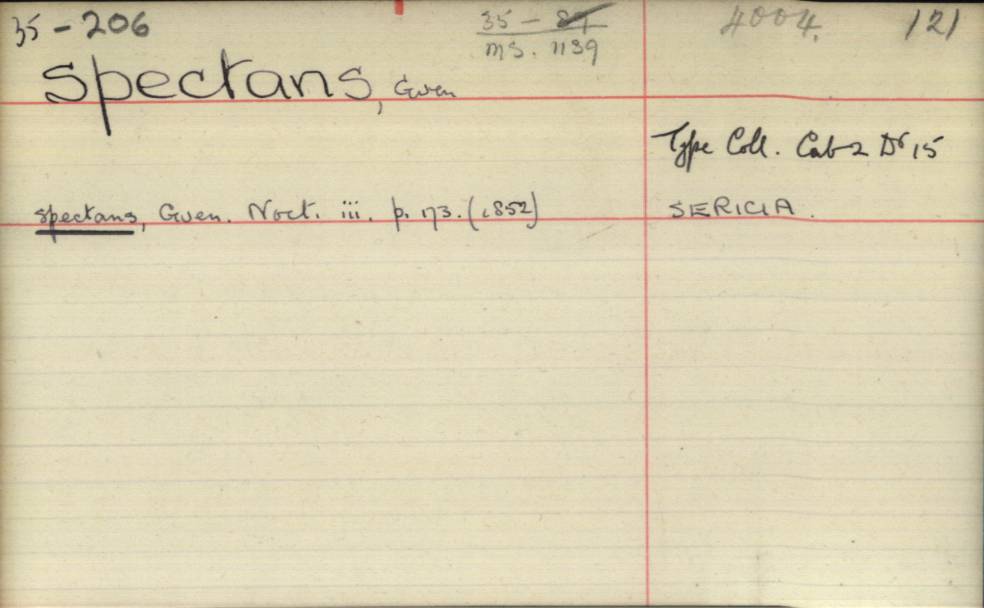 35-206 35-87 4004. 121
ms. 1139
spectans, Guen
Type Coll. Cab 2 Dr 15
spectans, Guen. Noct. iii. p. 173. (1852) SERICIA.